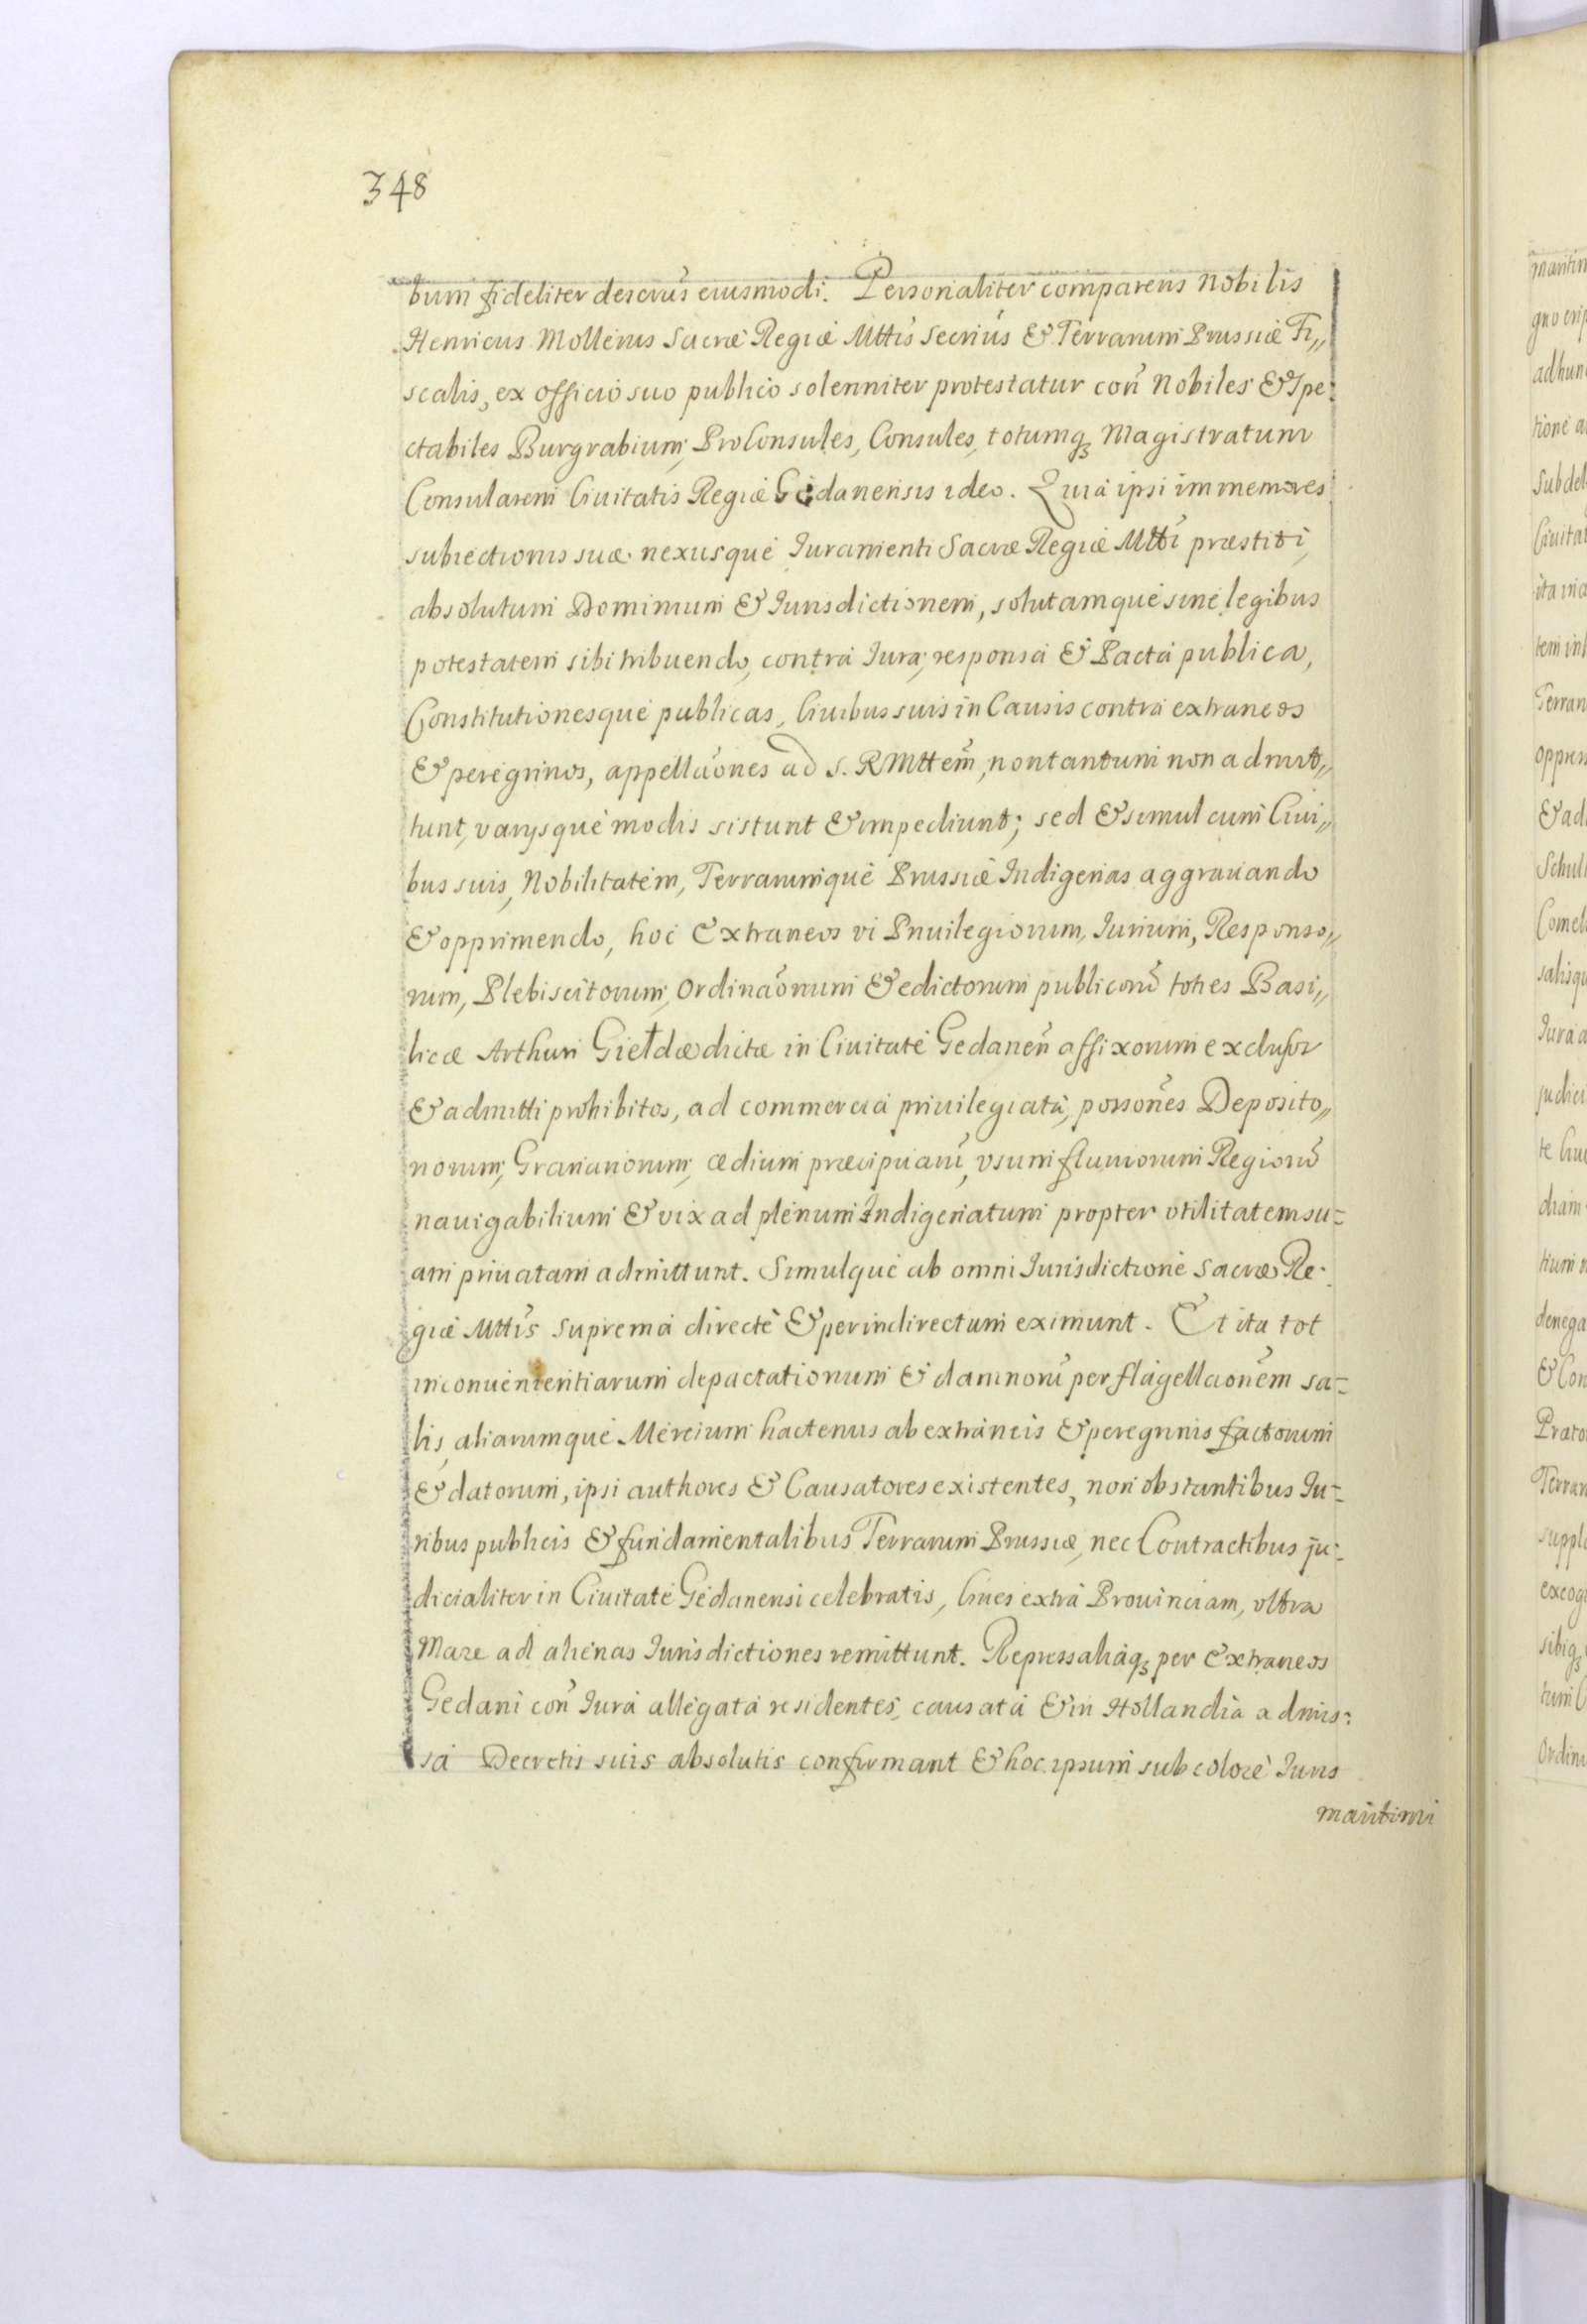 348
bum fideliter descrũs eiusmodi. Personaliter comparens Nobilis
Henricus Mollerus Sacræ Regiæ Mttis Secriũs & Terrarum Prussiæ Fi„
scalis, ex officio suo publico solenniter protestatur coñ Nobiles & Spe:
ctabiles Burgrabium, ProConsules, Consules, totumqꝫ Magistratum
Consularem Ciuitatis Regiæ Gedanensis ideo. Quia ipsi immemores
subiectionis suæ nexusque Juramenti Sacræ Regiæ Mtti præstiti,
absolutum Dominium & Jurisdictionem, solutamque sine legibus
potestatem sibi tribuendo, contra Jura, responsa & Pacta publica,
Constitutionesque publicas, Ciuibus suis in Causis contra extraneos
& peregrinos, appellãones ad S. RMttem, non tantum non admit„
tunt, varysque modis sistunt & impediunt; sed & simul cum Ciui„
bus suis, Nobilitatem, Terrarumque Prussiæ Indigenas aggrauando
& opprimendo, hoc Extraneos vi Priuilegiorum, Jurium, Responso„
rum, Plebiscitorum, Ordinãonum & edictorum publicorũ toties Basi„
licæ Arthuri Giełdæ dictæ in Ciuitate Gedaneñ affixorum exclusos
& admitti prohibitos, ad commercia priuilegiata, possoñes Deposito„
riorum, Granariorum, ædium præcipuarũ, vsum fluuiorum Regiorũ
nauigabilium & vix ad plenum Indigenatum propter vtilitatem su=
am priuatam admittunt. Simulque ab omni Jurisdictione Sacræ Re:
giæ Mttis suprema directe & per indirectum eximunt. Et ita tot
inconuenientiarum depactationum & damnorũ per flagellãonem sa=
lis, aliarumque Mercium hactenus ab extraneis & peregrinis factorum
& datorum, ipsi authores & Causatores existentes, non obstantibus Ju=
ribus publicis & fundamentalibus Terrarum Prussiæ, nec Contractibus ju:
dicialiter in Ciuitate Gedanensi celebratis, Ciues extra Prouinciam, vltra
Mare ad alienas Jurisdictiones remittunt. Repressaliaqꝫ per Extraneos
Gedani coñ Jura allegata residentes, causata & in Hollandia admis:
sa Decretis suis absolutis confirmant & hoc ipsum sub colore Juris
maritimi